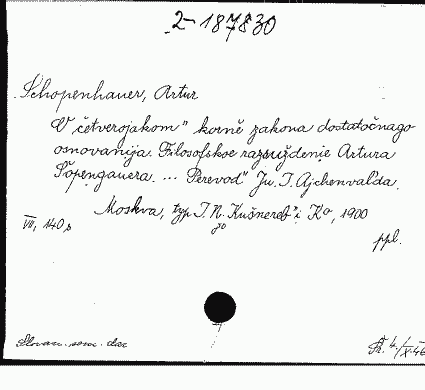 2-187830
Schopenhauer, Artur
O četverojakom" korně zakona dostatočnago
osnovanija. Filosofskoe razsuždenie Artura
Šopengauera. ... Perevod" Ju. I. Ajchenval'da.
Moskva, typ. I. N. Kušnereb" i Ko, 1900
VII, 140 s
ppl.
Slovan. sem. dar